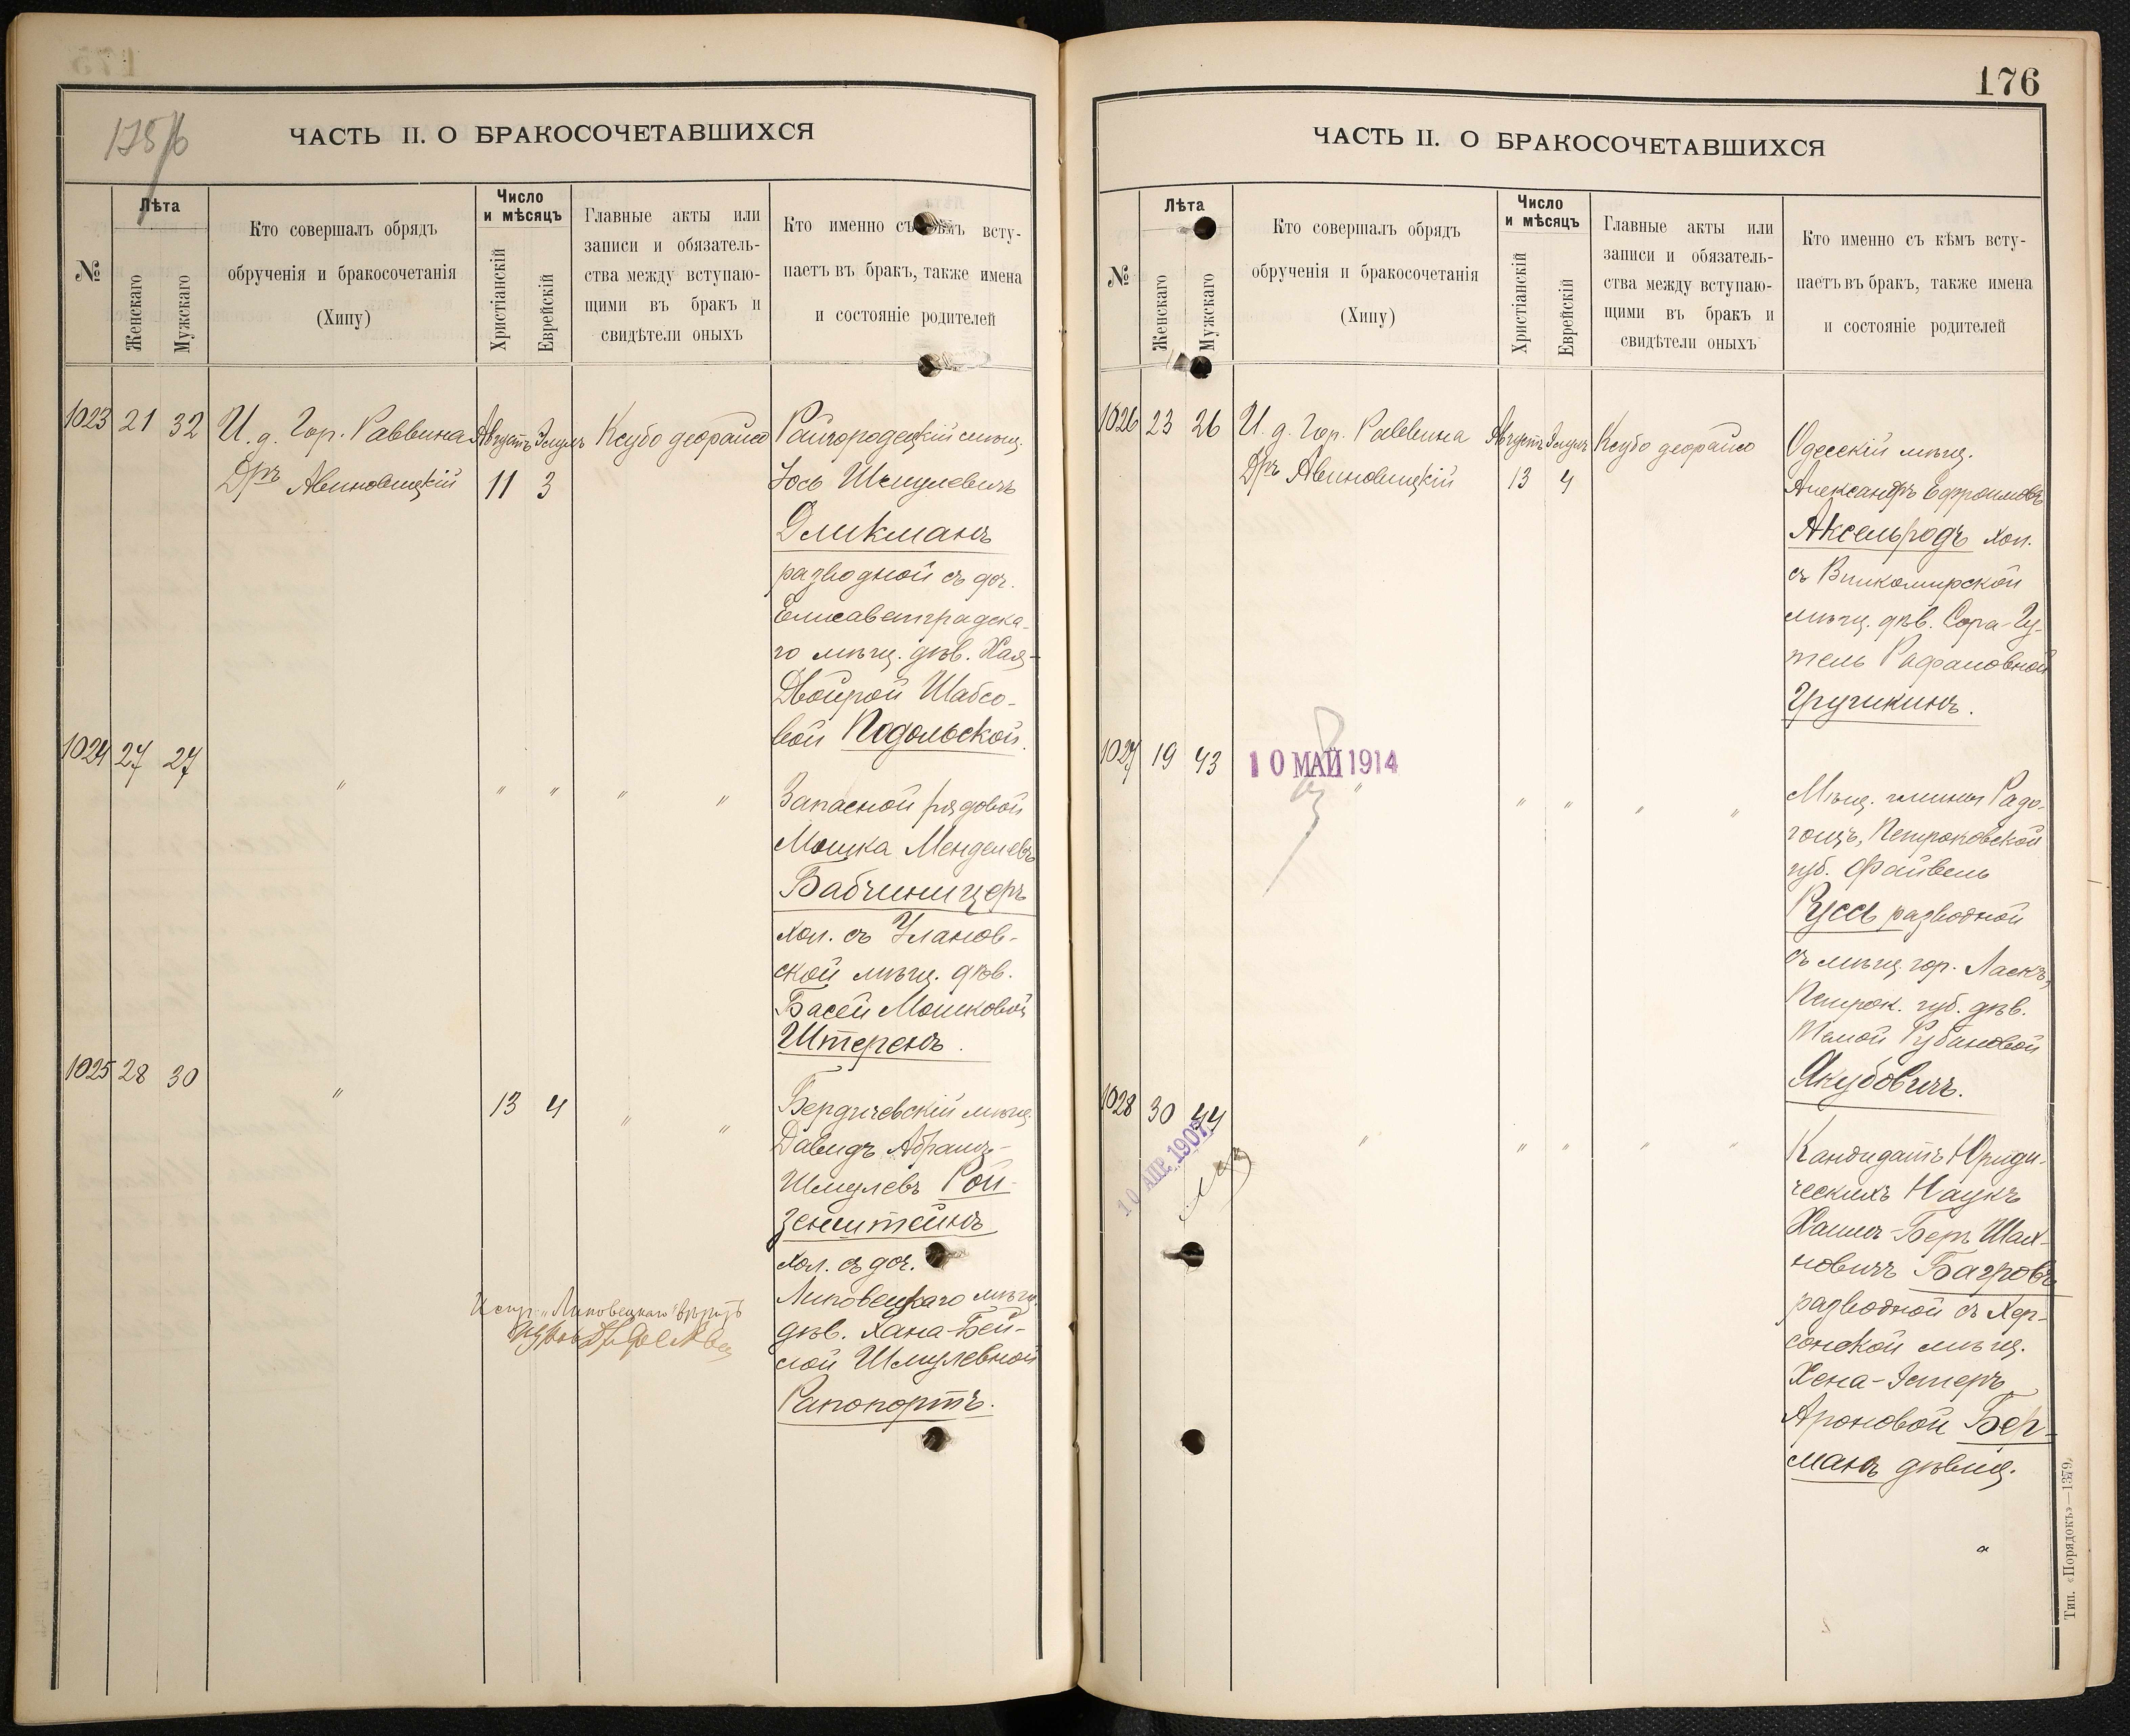 175/6
ЧАСТЬ II. О БРАКОСОЧЕТАВШИХСЯ
№
Лѣта
Женскаго
Мужскаго
Кто совершалъ обрядъ
обрученія и бракосочетанія
(Хипу)
Число
и мѣсяцъ
Христіанскій
Еврейскій
Главные акты или
записи и обязатель-
ства между вступаю-
щими въ бракъ и
свидѣтели оныхъ
Кто именно съ кѣмъ всту-
паетъ въ бракъ, также имена
и состояніе родителей
1023 21 32 И. д. Гор. Раввина Августъ Элулъ Ксубо деорайсо
Дръ Авиновицкій 11 3
Райгородецкій мѣщ.
Іось Шмулевичъ
Дликманъ
разводной съ доч.
Елисаветградска-
го мѣщ. дѣв. Хая-
Двойрой Шабсо-
вой Подольской.
1024 27 27 " " " " "
Запасной рядовой
Мошка Менделевъ
Бабчиницеръ
хол. съ Уланов-
ской мѣщ. дѣв.
Басей Мошковой
Штеренъ.
1025 28 30 " 13 4 " "
Бердичевскій мѣщ.
Давидъ Абрамъ-
Шмулевъ Рой-
зенштейнъ
хол. съ доч.
Липовецкаго мѣщ.
дѣв. Хана-Бей-
лой Шмулевной
Рапопортъ.
Испр. "Липовецкаго" вѣрить
176
ЧАСТЬ II. О БРАКОСОЧЕТАВШИХСЯ
№
Лѣта
Женскаго
Мужскаго
Кто совершалъ обрядъ
обрученія и бракосочетанія
(Хипу)
Число
и мѣсяцъ
Христіанскій
Еврейскій
Главные акты или
записи и обязатель-
ства между вступаю-
щими въ бракъ и
свидѣтели оныхъ
Кто именно съ кѣмъ всту-
паетъ въ бракъ, также имена
и состояніе родителей
1026 23 26 И. д. Гор. Раввина Августъ Элулъ Ксубо деорайсо
Дръ Авиновицкій 13 4
Одесскій мѣщ.
Александръ Ефроимовъ
Аксельродъ хол.
съ Вилкомирской
мѣщ. дѣв. Сора-Гу-
тель Рафаиловной
1027 19 43 " " " " "
10 МАЙ 1914
Мѣщ. гмины Радо-
гощъ, Петроковской
губ. Файвель
Руссъ разводной
съ мѣщ. гор. Ласкъ,
Петрок. губ. дѣв.
Рубиновой
Якубовичъ.
1028 30 44 " " " " "
10 АПР. 1907
Кандидатъ Юриди-
ческихъ Наукъ
Хаимъ-Беръ Шах-
новичъ Багровъ
разводной съ Хер-
сонской мѣщ.
Хена-Эстеръ
Ароновой Бер-
манъ дѣвиц.
Тип. «Порядокъ»—1379.